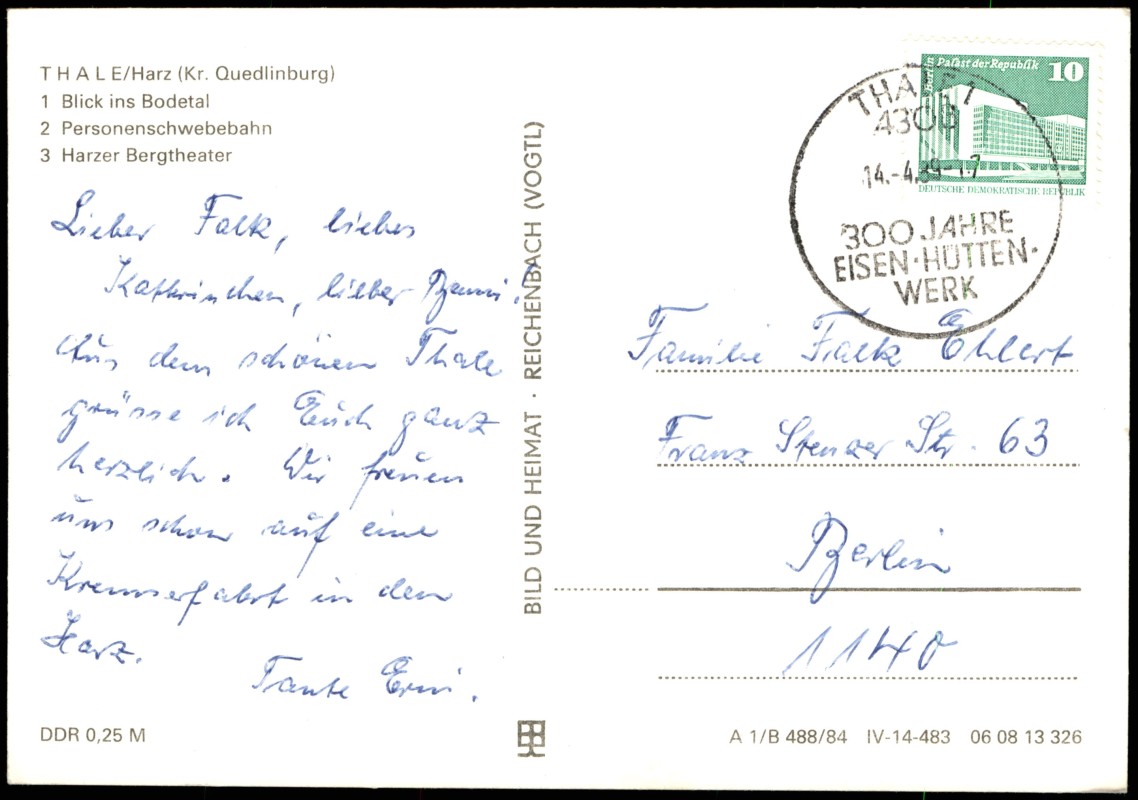 T H A L E/Harz (Kr. Quedlinburg)
1 Blick ins Bodetal
2 Personenschwebebahn
3 Harzer Bergtheater
Lieber Falk, liebes
Kathrinchen, lieber
Aus dem schönen Thale
grüsse ich Euch ganz
herzlich. Wir freuen
uns schon auf eine
Kremserfahrt in den
Harz.
Tante Erni.
DDR 0,25 M
BILD UND HEIMAT · REICHENBACH (VOGTL)
Berlin Palast der Republik 10
DEUTSCHE DEMOKRATISCHE REPUBLIK
THALE 1
4308
14.-4.89-17
300 JAHRE
EISEN·HÜTTEN·
WERK
Familie Falk Ehlert
Franz Stenzer Str. 63
Berlin
1140
A 1/B 488/84 IV-14-483 06 08 13 326